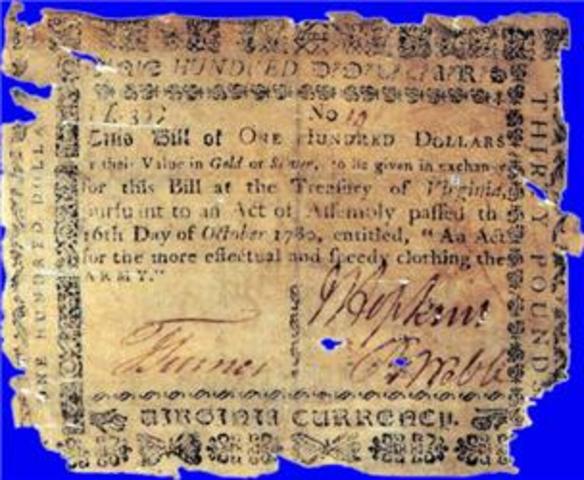 ONE HUNDRED DOLLARS
£. 30
No 10
This Bill of ONE HUNDRED DOLLARS
or their Value in Gold or Silver, to be given in exchange
for this Bill at the Treasury of Virginia,
pursuant to an Act of Aſſembly paſſed the
16th Day of October 1780, entitled, "An Act
for the more effectual and ſpeedy clothing the
ARMY."
J Hopkins
T Turner
VIRGINIA CURRENCY.
ONE HUNDRED DOLLA
THIRTY POUNDS